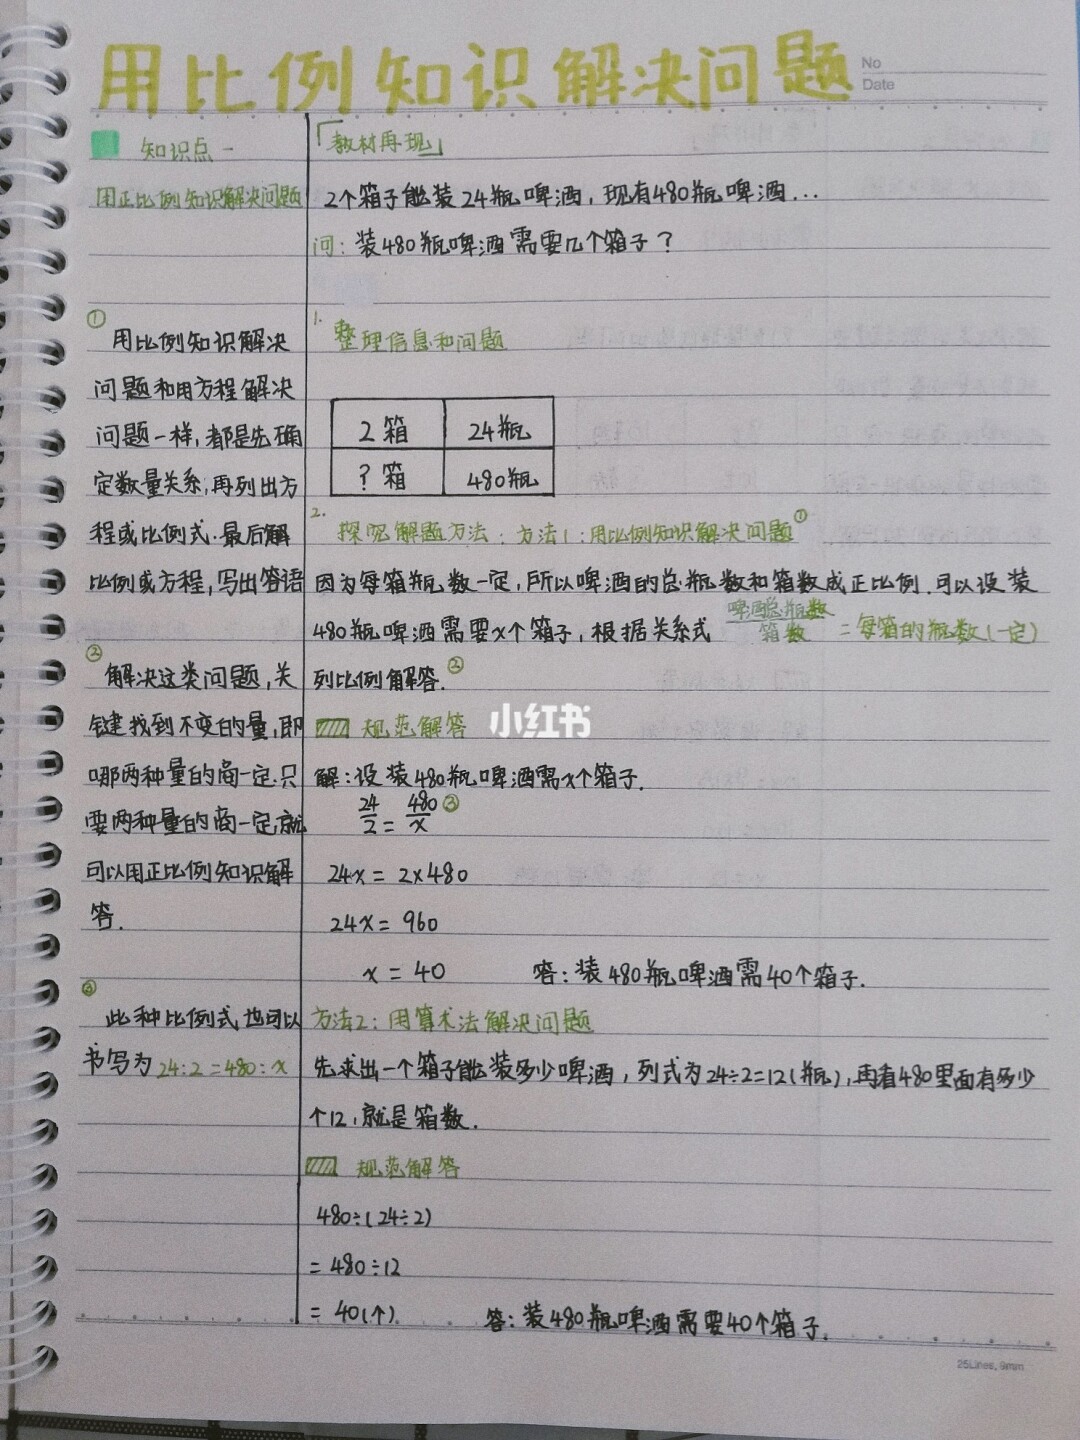 用比例知识解决问题
No
Date
知识点一
「教材再现」
用正比例知识解决问题
2个箱子能装24瓶啤酒，现有480瓶啤酒...
问：装480瓶啤酒需要几个箱子？
① 用比例知识解决
问题和用方程解决
问题一样，都是先确
定数量关系，再列出方
程或比例式.最后解
比例或方程，写出答语
② 解决这类问题，关
键找到不变的量，即
哪两种量的商一定.只
要两种量的商一定，就
可以用正比例知识解
答.
④ 此种比例式也可以
书写为24:2=480:x
1. 整理信息和问题
2箱 24瓶
？箱 480瓶
2. 探究解题方法：方法1：用比例知识解决问题①
因为每箱瓶数一定，所以啤酒的总瓶数和箱数成正比例.可以设装
480瓶啤酒需要x个箱子，根据关系式 啤酒总瓶数/箱数 =每箱的瓶数(一定)
列比例解答.②
规范解答
小红书
解：设装480瓶啤酒需x个箱子.
24/2=480/x③
24x=2×480
24x=960
x=40 答：装480瓶啤酒需40个箱子.
方法2：用算术法解决问题
先求出一个箱子能装多少啤酒，列式为24÷2=12(瓶)，再看480里面有多少
个12，就是箱数.
规范解答
480÷(24÷2)
=480÷12
=40(个). 答：装480瓶啤酒需要40个箱子.
25Lines, 9mm